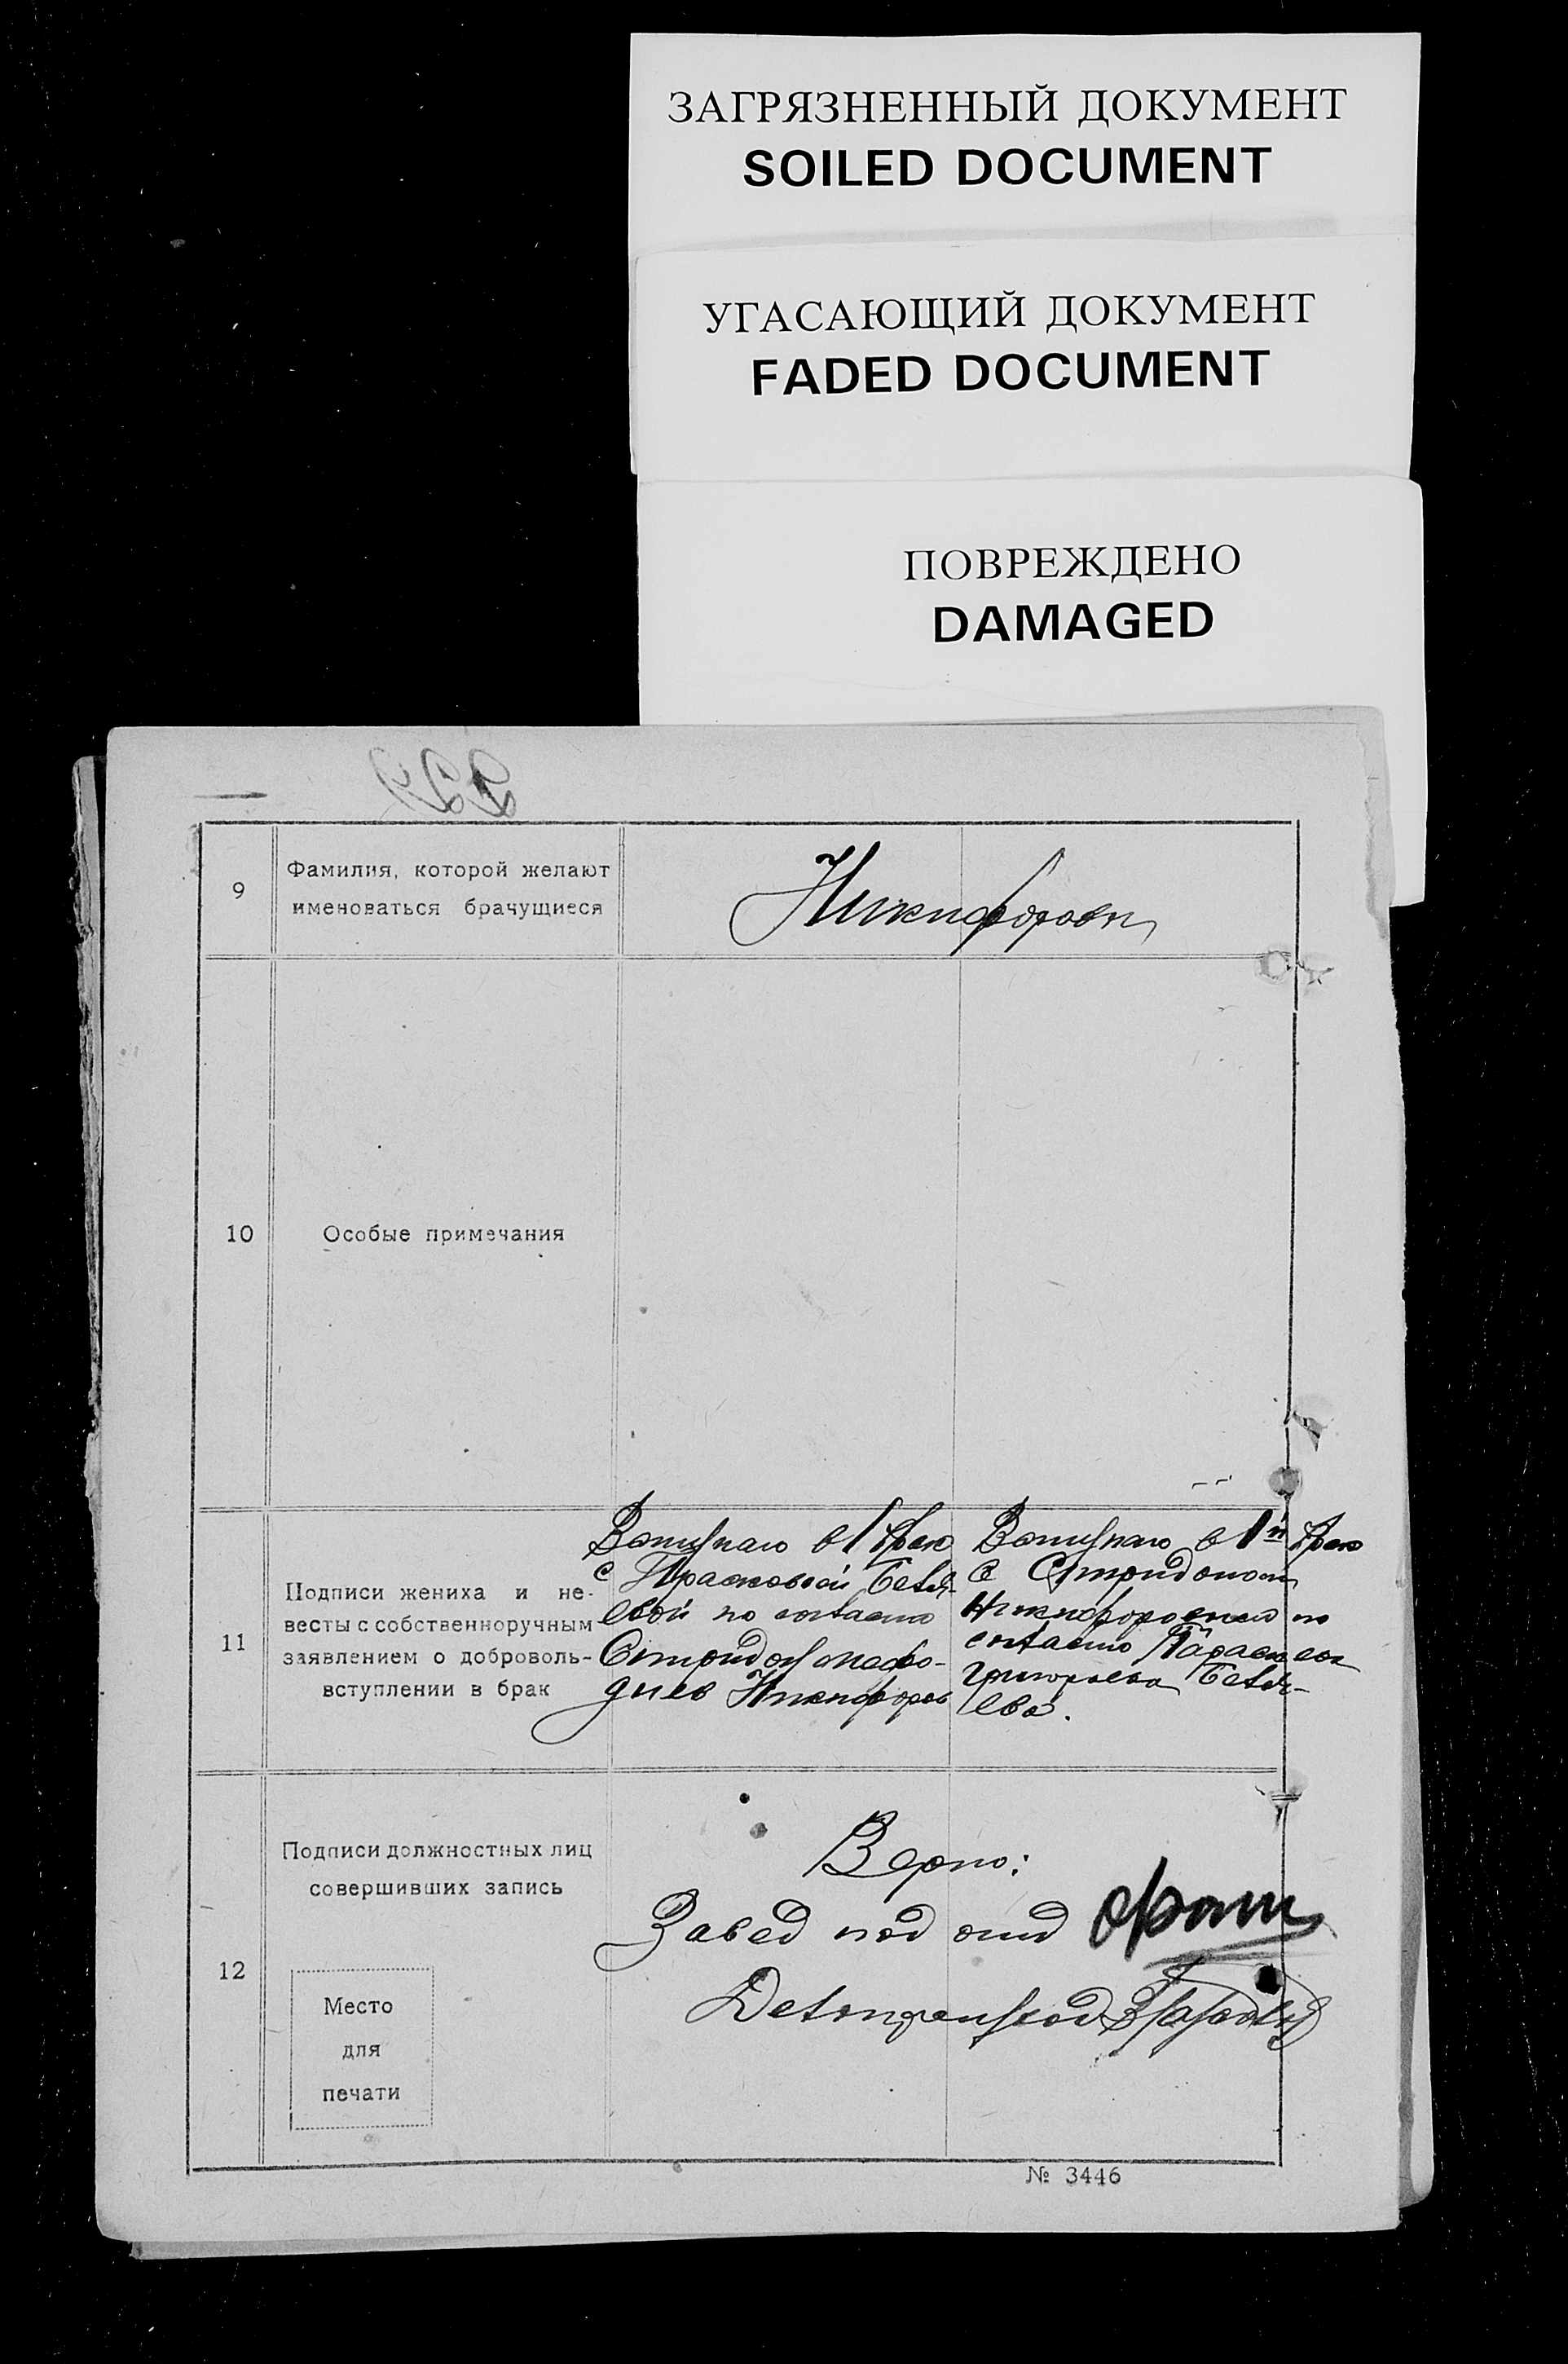 ЗАГРЯЗНЕННЫЙ ДОКУМЕНТ
SOILED DOCUMENT
УГАСАЮЩИЙ ДОКУМЕНТ
FADED DOCUMENT
ПОВРЕЖДЕНО
DAMAGED
9
Фамилия, которой желают
именоваться брачущиеся
Никифоровы
10
Особые примечания
11
Подписи жениха и не-
весты с собственноручным
заявлением о доброволь-
вступлении в брак
Вступаю в 1 брак
с Прасковьей
евой по согласию
Спиридон
Никифоров
Вступаю в 1й брак
с Спиридоном
Никифоровым по
согласию Параскева
Григорьева
ева.
12
Подписи должностных лиц
совершивших запись
Место
для
печати
Верно:
Завед под отд
Делопроизвод
№ 3446